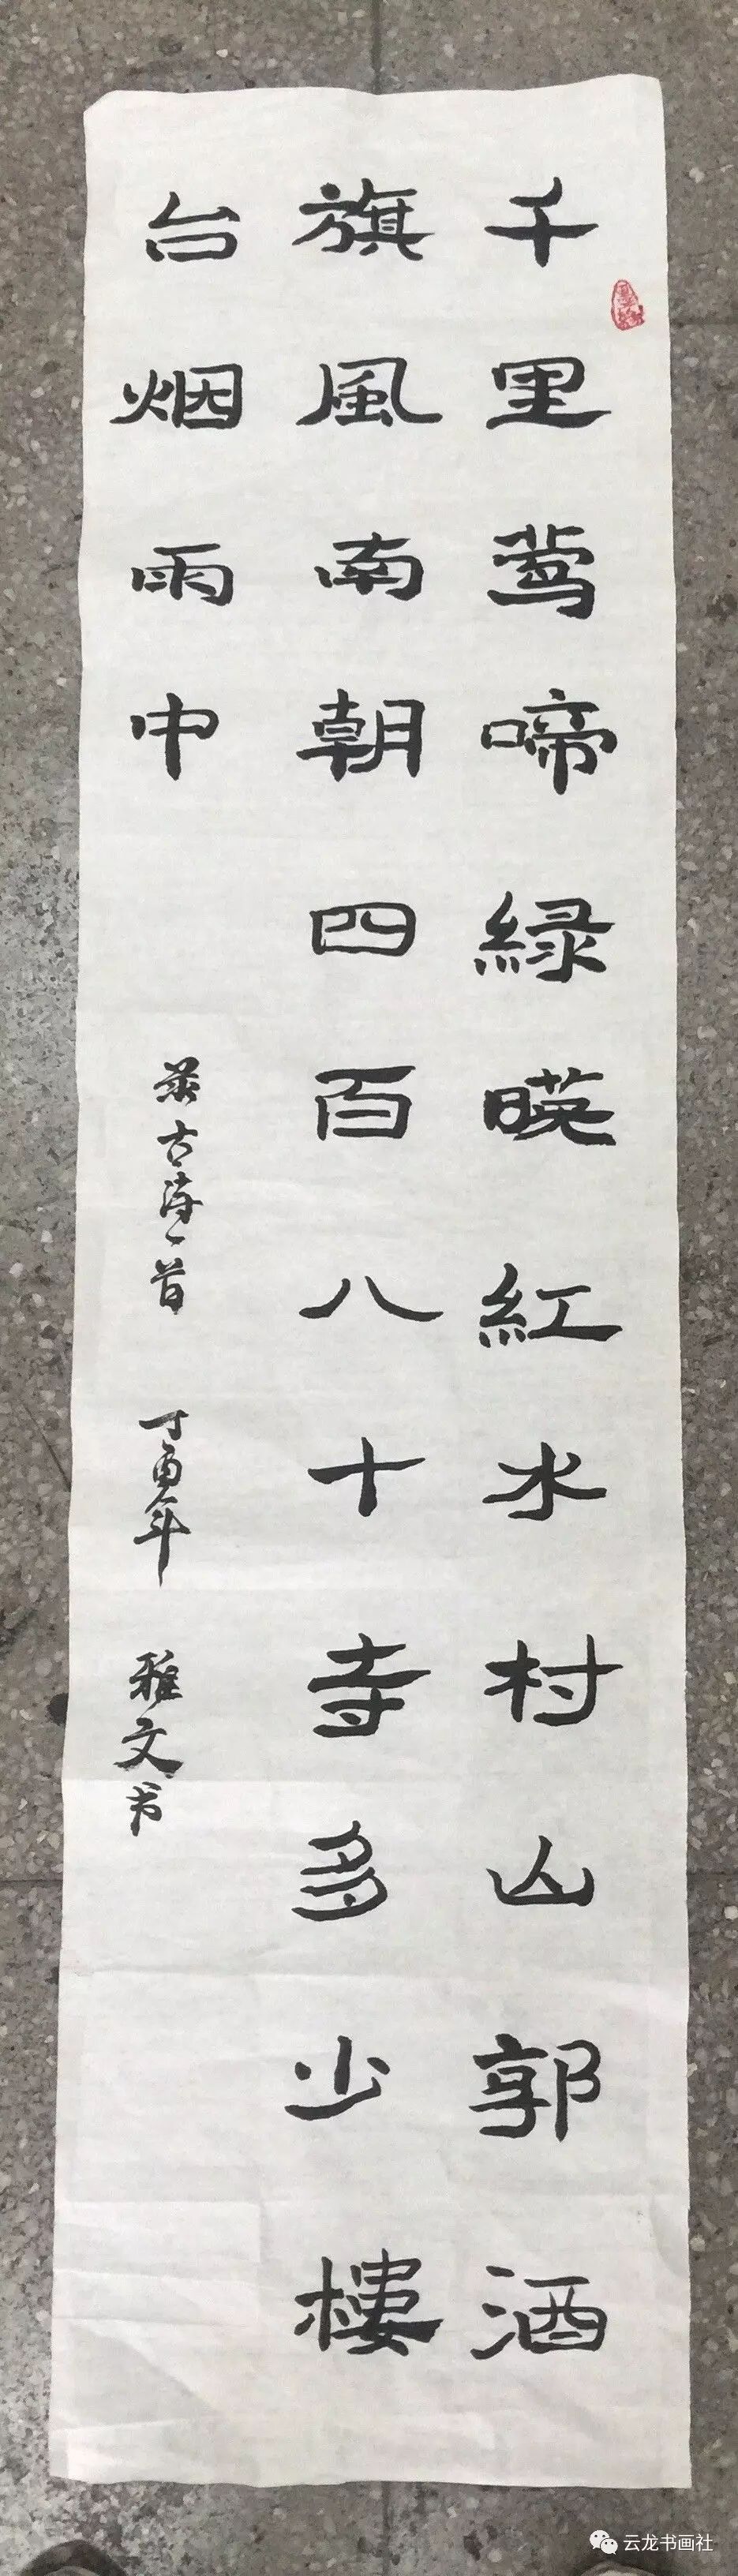 千里莺啼緑暎紅水村山郭酒
旗風南朝四百八十寺多少樓
台烟雨中
录古诗一首 丁酉年 雅文书
云龙书画社